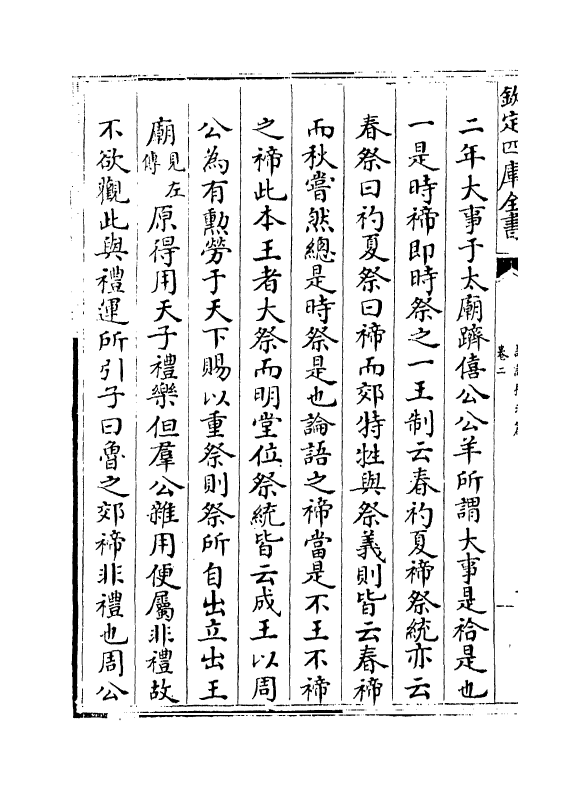 欽定四庫全書
卷二
二年大事于太廟躋僖公公羊所謂大事是祫是也
一是時禘即時祭之一王制云春礿夏禘祭統亦云
春祭曰礿夏祭曰禘而郊特牲與祭義則皆云春禘
而秋嘗然總是時祭是也論語之禘當是不王不禘
之禘此本王者大祭而明堂位祭統皆云成王以周
公為有勲勞于天下賜以重祭則祭所自出立出王
廟見左傳原得用天子禮樂但羣公雜用便屬非禮故
不欲觀此與禮運所引子曰魯之郊禘非禮也周公